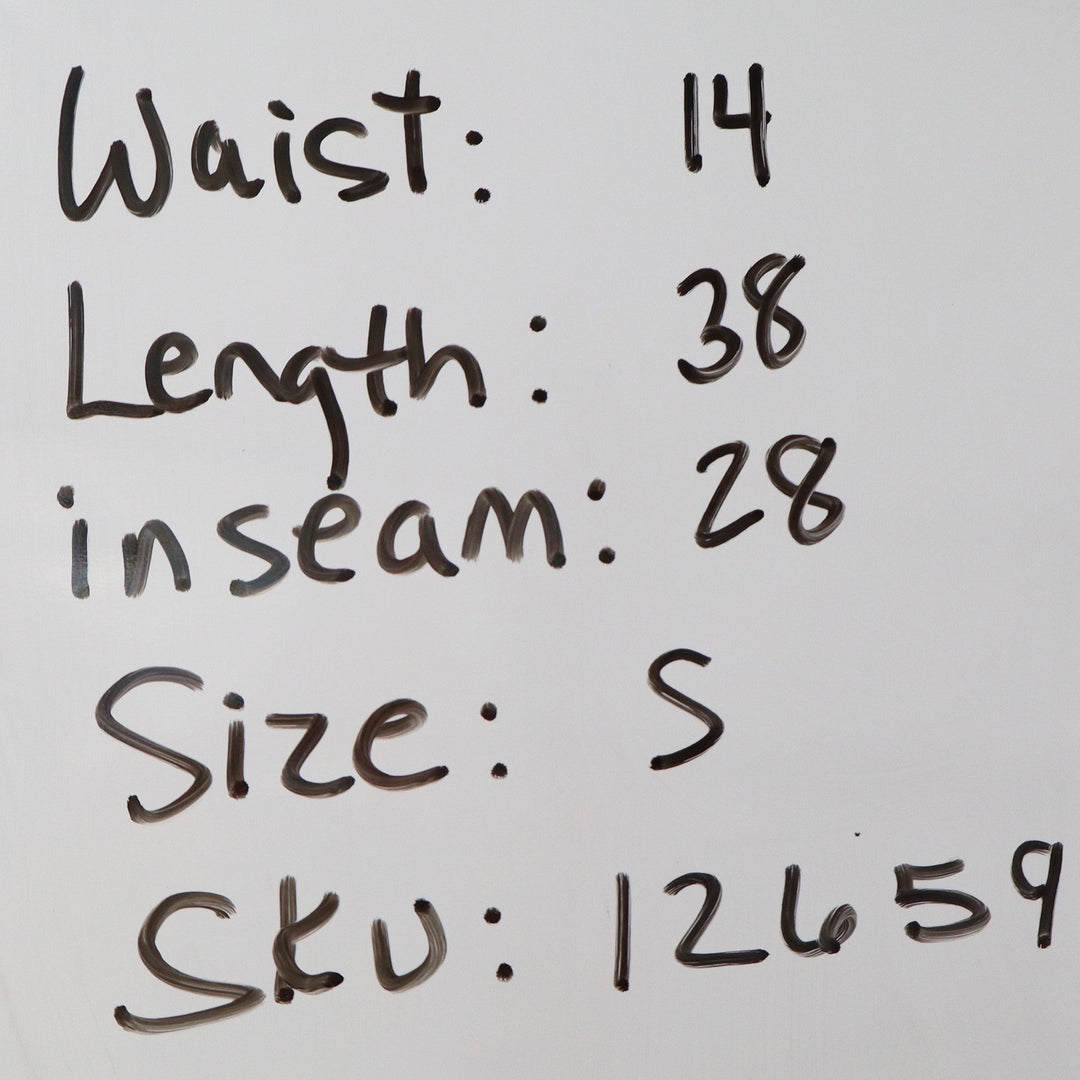 Waist: 14
Length: 38
inseam: 28
Size: S
Sku: 12659